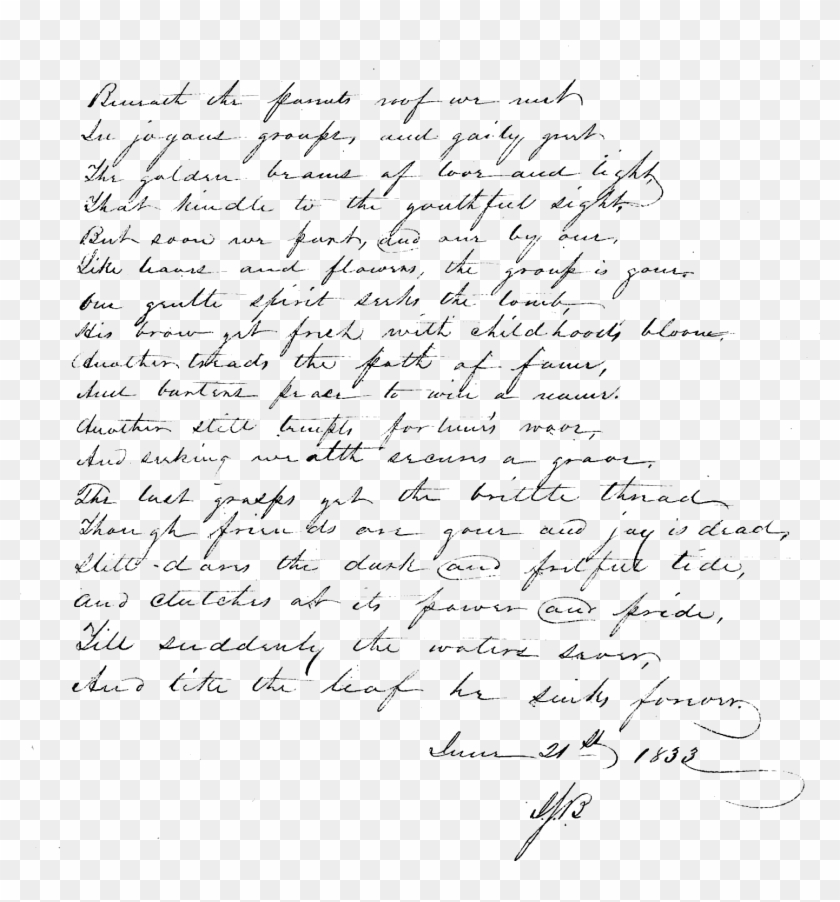 Beneath the parents roof we meet
In joyous groups, and gaily greet
The golden beams of love and light,
That kindle to the youthful sight,
But soon we part, and one by one,
Like leaves and flowers, the group is gone.
One gentle spirit seeks the tomb,
His brow yet fresh with childhood's bloom.
Another treads the path of fame,
And barters peace to win a name.
Another still tempts fortune's wave,
And seeking wealth secures a grave.
The last grasps yet the brittle thread
Though friends are gone and joy is dead,
Still dares the dark and fretful tide,
and clutches at its power and pride,
Till suddenly the waters sever,
And like the leaf he sinks forever.
June 21st 1833